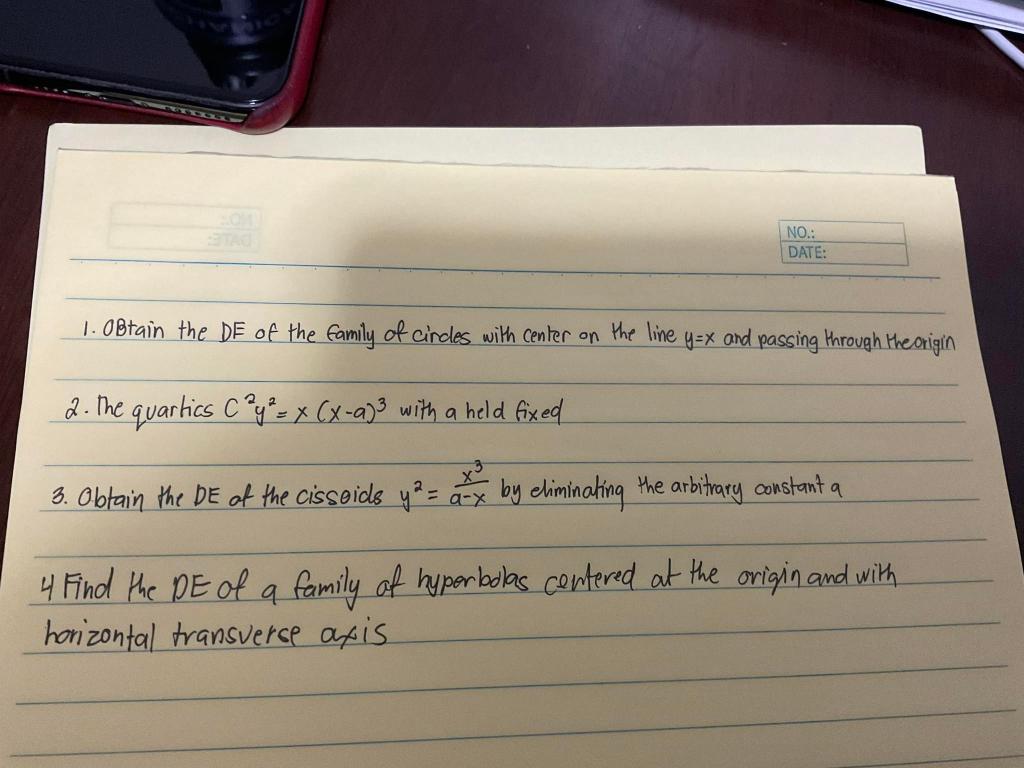 NO.:
DATE:
1. OBtain the DE of the family of circles with center on the line y=x and passing through the origin
2. The quartics C²y² = x (x-a)³ with a held fixed
3. Obtain the DE of the cissoids y² = x³/a-x by eliminating the arbitrary constant a
4 Find the DE of a family of hyperbolas centered at the origin and with
horizontal transverse axis